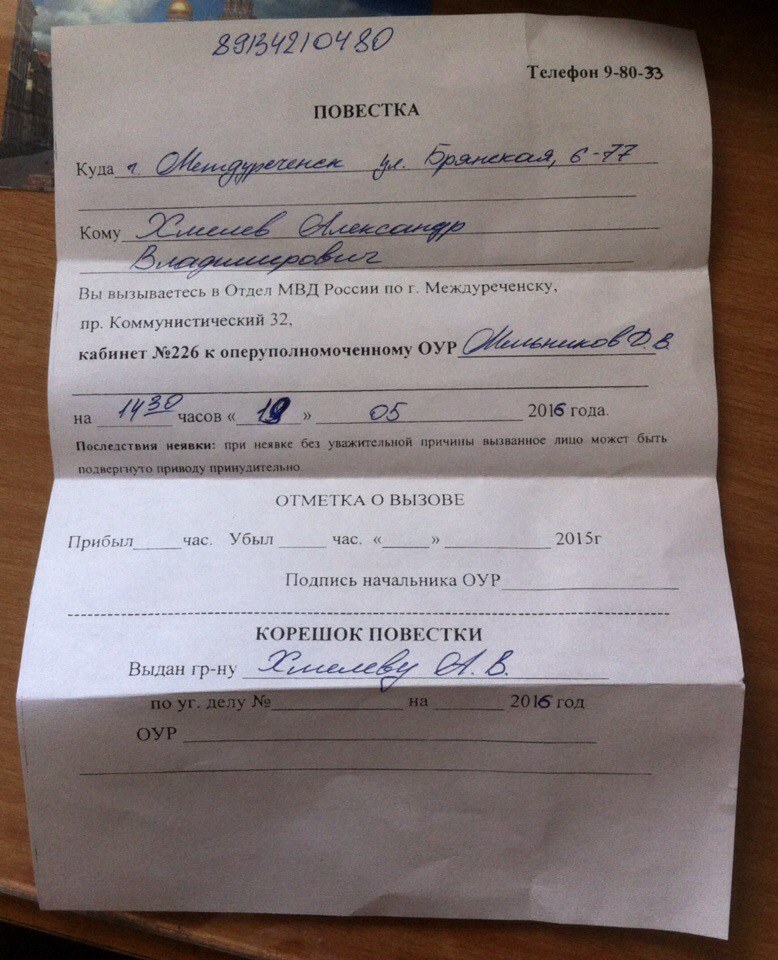 89134210480
Телефон 9-80-33
ПОВЕСТКА
Куда г. Междуреченск ул. Брянская, 6-77
Кому Хмелев Александр
Владимирович
Вы вызываетесь в Отдел МВД России по г. Междуреченску,
пр. Коммунистический 32,
кабинет №226 к оперуполномоченному ОУР Мельников Д.В.
на 1430 часов «19» 05 2016 года.
Последствия неявки: при неявке без уважительной причины вызванное лицо может быть
подвергнуто приводу принудительно
ОТМЕТКА О ВЫЗОВЕ
Прибыл_____час. Убыл _____ час. «_____» ___________ 2015г
Подпись начальника ОУР__________________
КОРЕШОК ПОВЕСТКИ
Выдан гр-ну Хмелеву А. В.
по уг. делу №_____________ на _______ 2016 год
ОУР